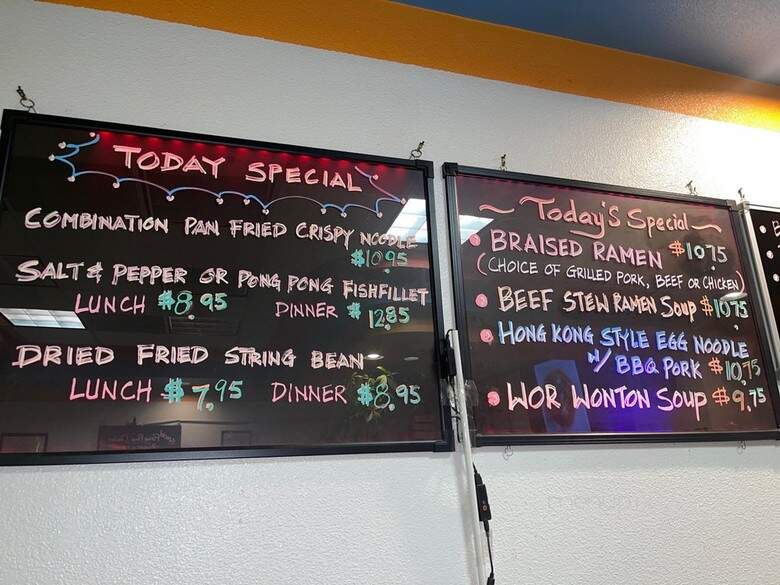 TODAY SPECIAL
COMBINATION PAN FRIED CRISPY NOODLE
$10.95
SALT & PEPPER OR PONG PONG FISHFILLET
LUNCH $8.95 DINNER $12.85
DRIED FRIED STRING BEAN
LUNCH $7.95 DINNER $8.95
~ Today'S Special ~
• BRAISED RAMEN $10.75
(CHOICE OF GRILLED PORK, BEEF OR CHICKEN)
• BEEF STEW RAMEN SOUP $10.75
• HONG KONG STYLE EGG NOODLE
W/ BBQ PORK $10.75
• WOR WONTON SOUP $9.75